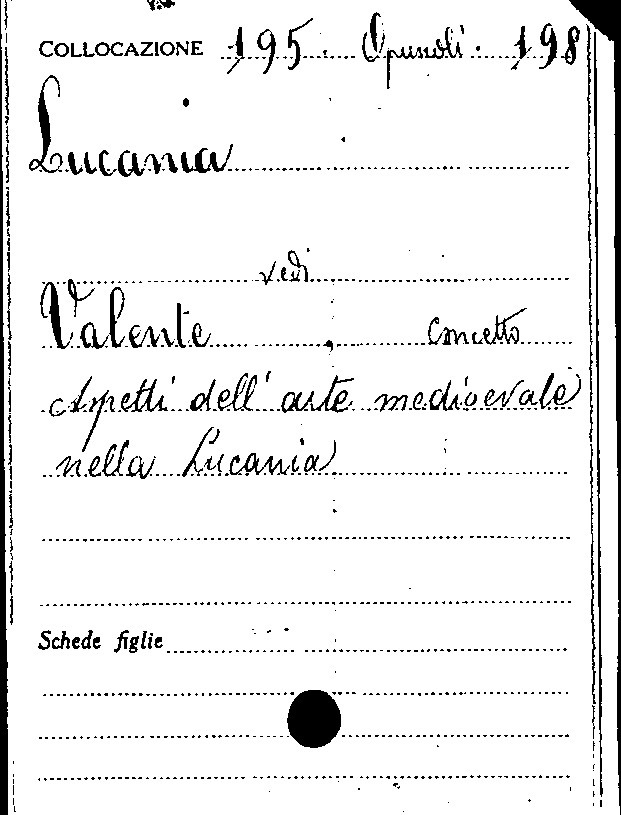 COLLOCAZIONE 195. Opuscoli. 198
Lucania
vedi
Valente, Concetto
Aspetti dell'arte medioevale
nella Lucania
Schede figlie